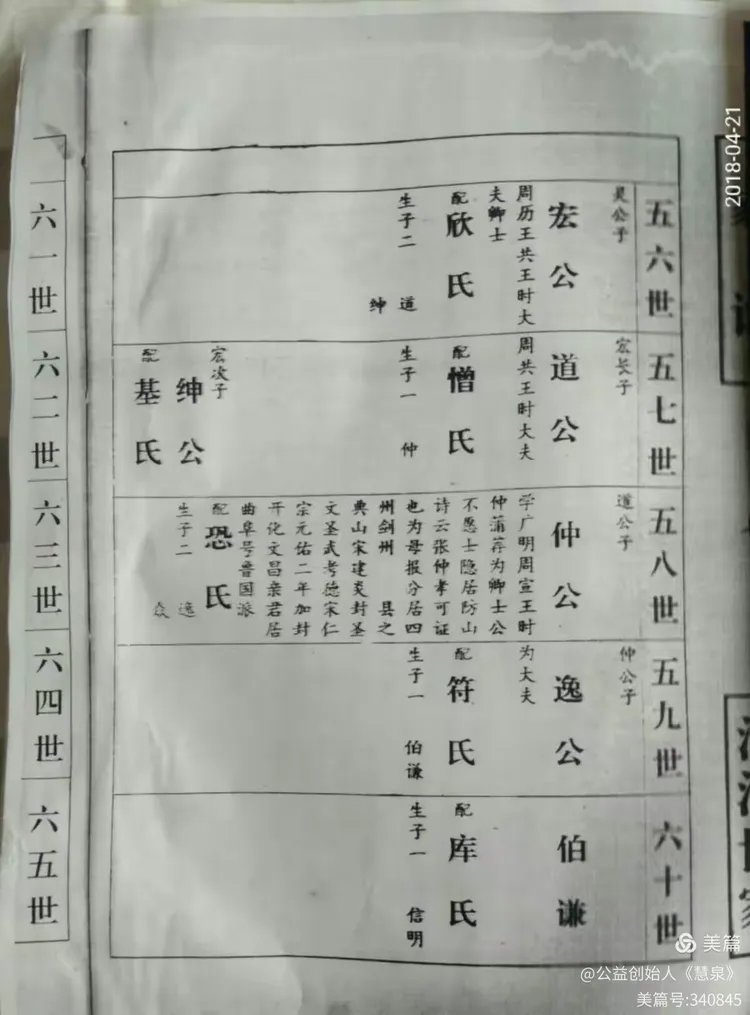 五六世
昊公子
宏公
周历王共王时大
夫卿士
配
欣氏
生子二
道
绅
五七世
宏长子
道公
周共王时大夫
配
憎氏
生子一 仲
宏次子
绅公
配
基氏
五八世
道公子
仲公
学广明周宣王时
仲蒲荐为卿士公
不愿士隐居防山
诗云张仲孝可证
也为母报分居四
州剑州 县之
典山宋建炎封圣
文圣武考德宋仁
宗元佑二年加封
开化文昌亲君居
曲阜号鲁国派
配
恐氏
生子二
逸
焱
五九世
仲公子
逸公
为大夫
配
符氏
生子一 伯谦
六十世
伯谦
配
库氏
生子一 信明
六一世
六二世
六三世
六四世
六五世
2018-04-21
美篇
@公益创始人《慧泉》
美篇号:340845